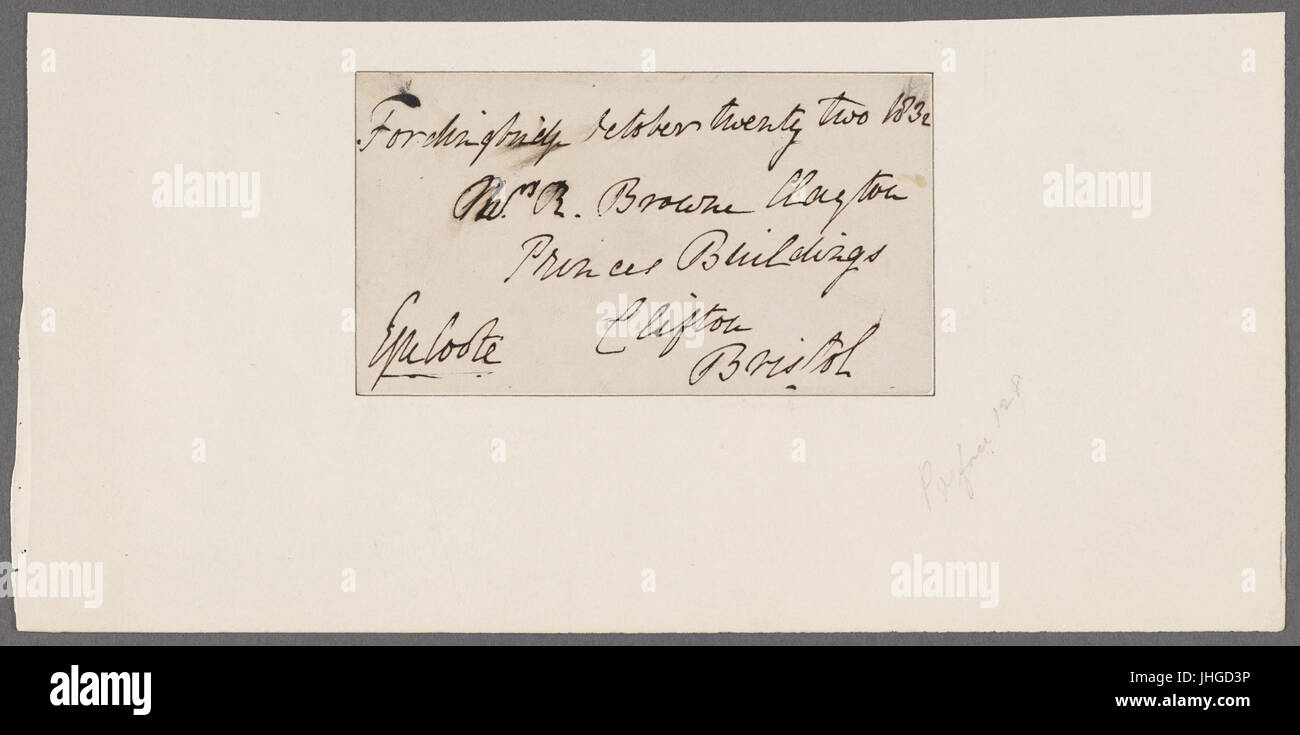 Fordingbridge October twenty two 1832
Mrs. R. Browne Clayton
Princes Buildings
Clifton
Bristol
Eyre Coote
128
alamy
alamy
alamy
alamy
alamy
alamy
a alamy stock photo
Image ID: JHGD3P
www.alamy.com